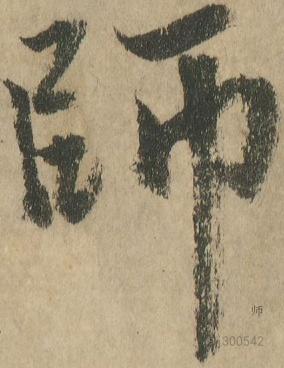 師
师
300542